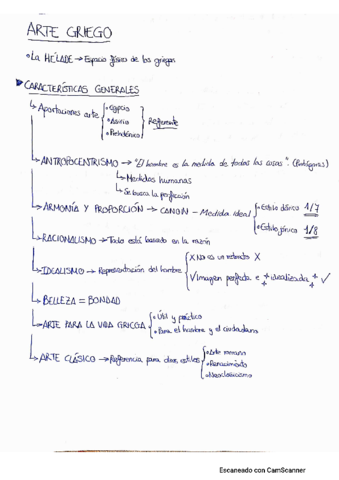 ARTE GRIEGO
• La HÉLADE → Espacio físico de los griegos
▶ CARACTERÍSTICAS GENERALES
↳ Aportaciones arte { • egipcio
• Asirio
• Prehelénico } Referente
↳ ANTROPOCENTRISMO → "El hombre es la medida de todas las cosas". (Protágoras)
↳ Medidas humanas
↳ Se busca la perfección
↳ ARMONÍA Y PROPORCIÓN → CANON – Medida ideal { • Estilo dórico 1/7
• Estilo jónico 1/8
↳ RACIONALISMO → Todo está basado en la razón
↳ IDEALISMO → Representación del hombre { X No es un retrato X
V Imagen perfecta e + idealizada + ✓
↳ BELLEZA = BONDAD
↳ ARTE PARA LA VIDA GRIEGA { • Útil y práctico
• Para el hombre y el ciudadano
↳ ARTE CLÁSICO → Referencia para otros estilos { • Arte romano
• Renacimiento
• Neoclasicismo
Escaneado con CamScanner